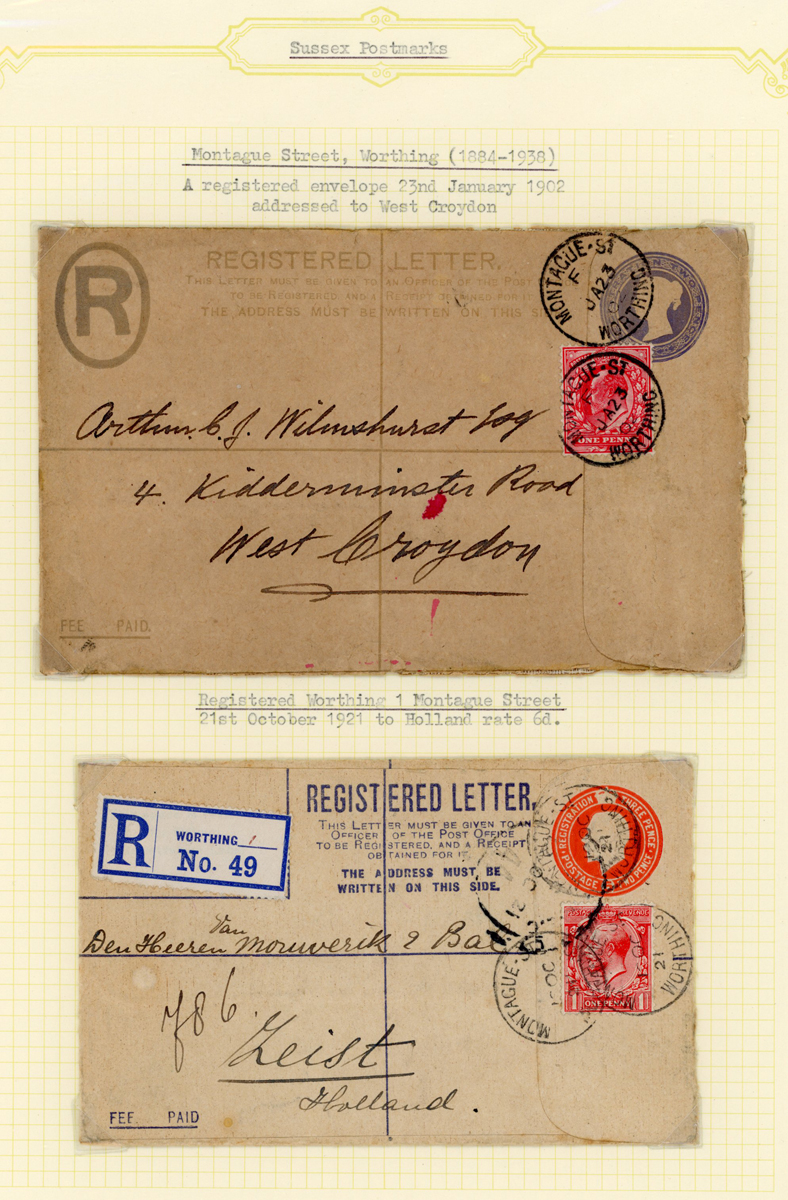 Sussex Postmarks
Montague Street, Worthing (1884-1938)
A registered envelope 23nd January 1902
addressed to West Croydon
R
REGISTERED LETTER.
THIS LETTER MUST BE GIVEN TO AN OFFICER OF THE POST
TO BE REGISTERED AND A RECEIPT OBTAINED FOR IT
THE ADDRESS MUST BE WRITTEN ON THIS SIDE
MONTAGUE-ST
F
JA 23
WORTHING
MONTAGUE-ST
JA 23
02
WORTHING
ONE PENNY
Arthur. C. J. Wilmshurst Esq
4. Kidderminster Road
West Croydon
FEE PAID.
Registered Worthing 1 Montague Street
21st October 1921 to Holland rate 6d.
R
WORTHING 1
No. 49
REGISTERED LETTER.
THIS LETTER MUST BE GIVEN TO AN
OFFICER OF THE POST OFFICE
TO BE REGISTERED, AND A RECEIPT
OBTAINED FOR IT
THE ADDRESS MUST BE
WRITTEN ON THIS SIDE.
REGISTRATION THREE PENCE
POSTAGE TWO PENCE
Van
Den Heeren
MONTAGUE-ST
OC
21
WORTHING
ONE PENNY
786.
Zeist
Holland.
FEE PAID